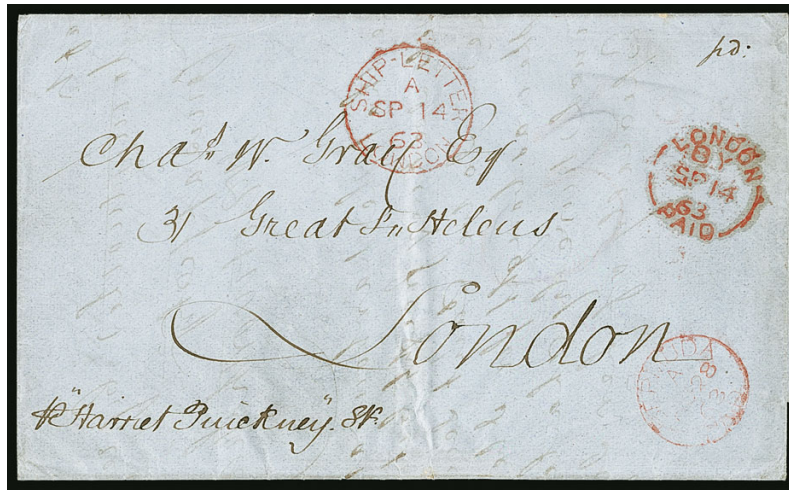 pd.
SHIP-LETTER
A
SP 14
63
LONDON
LONDON
SP 14
63
PAID
Chas. W. Gray Esq
31 Great St. Helens
London
"Harriet Pinckney" Str.